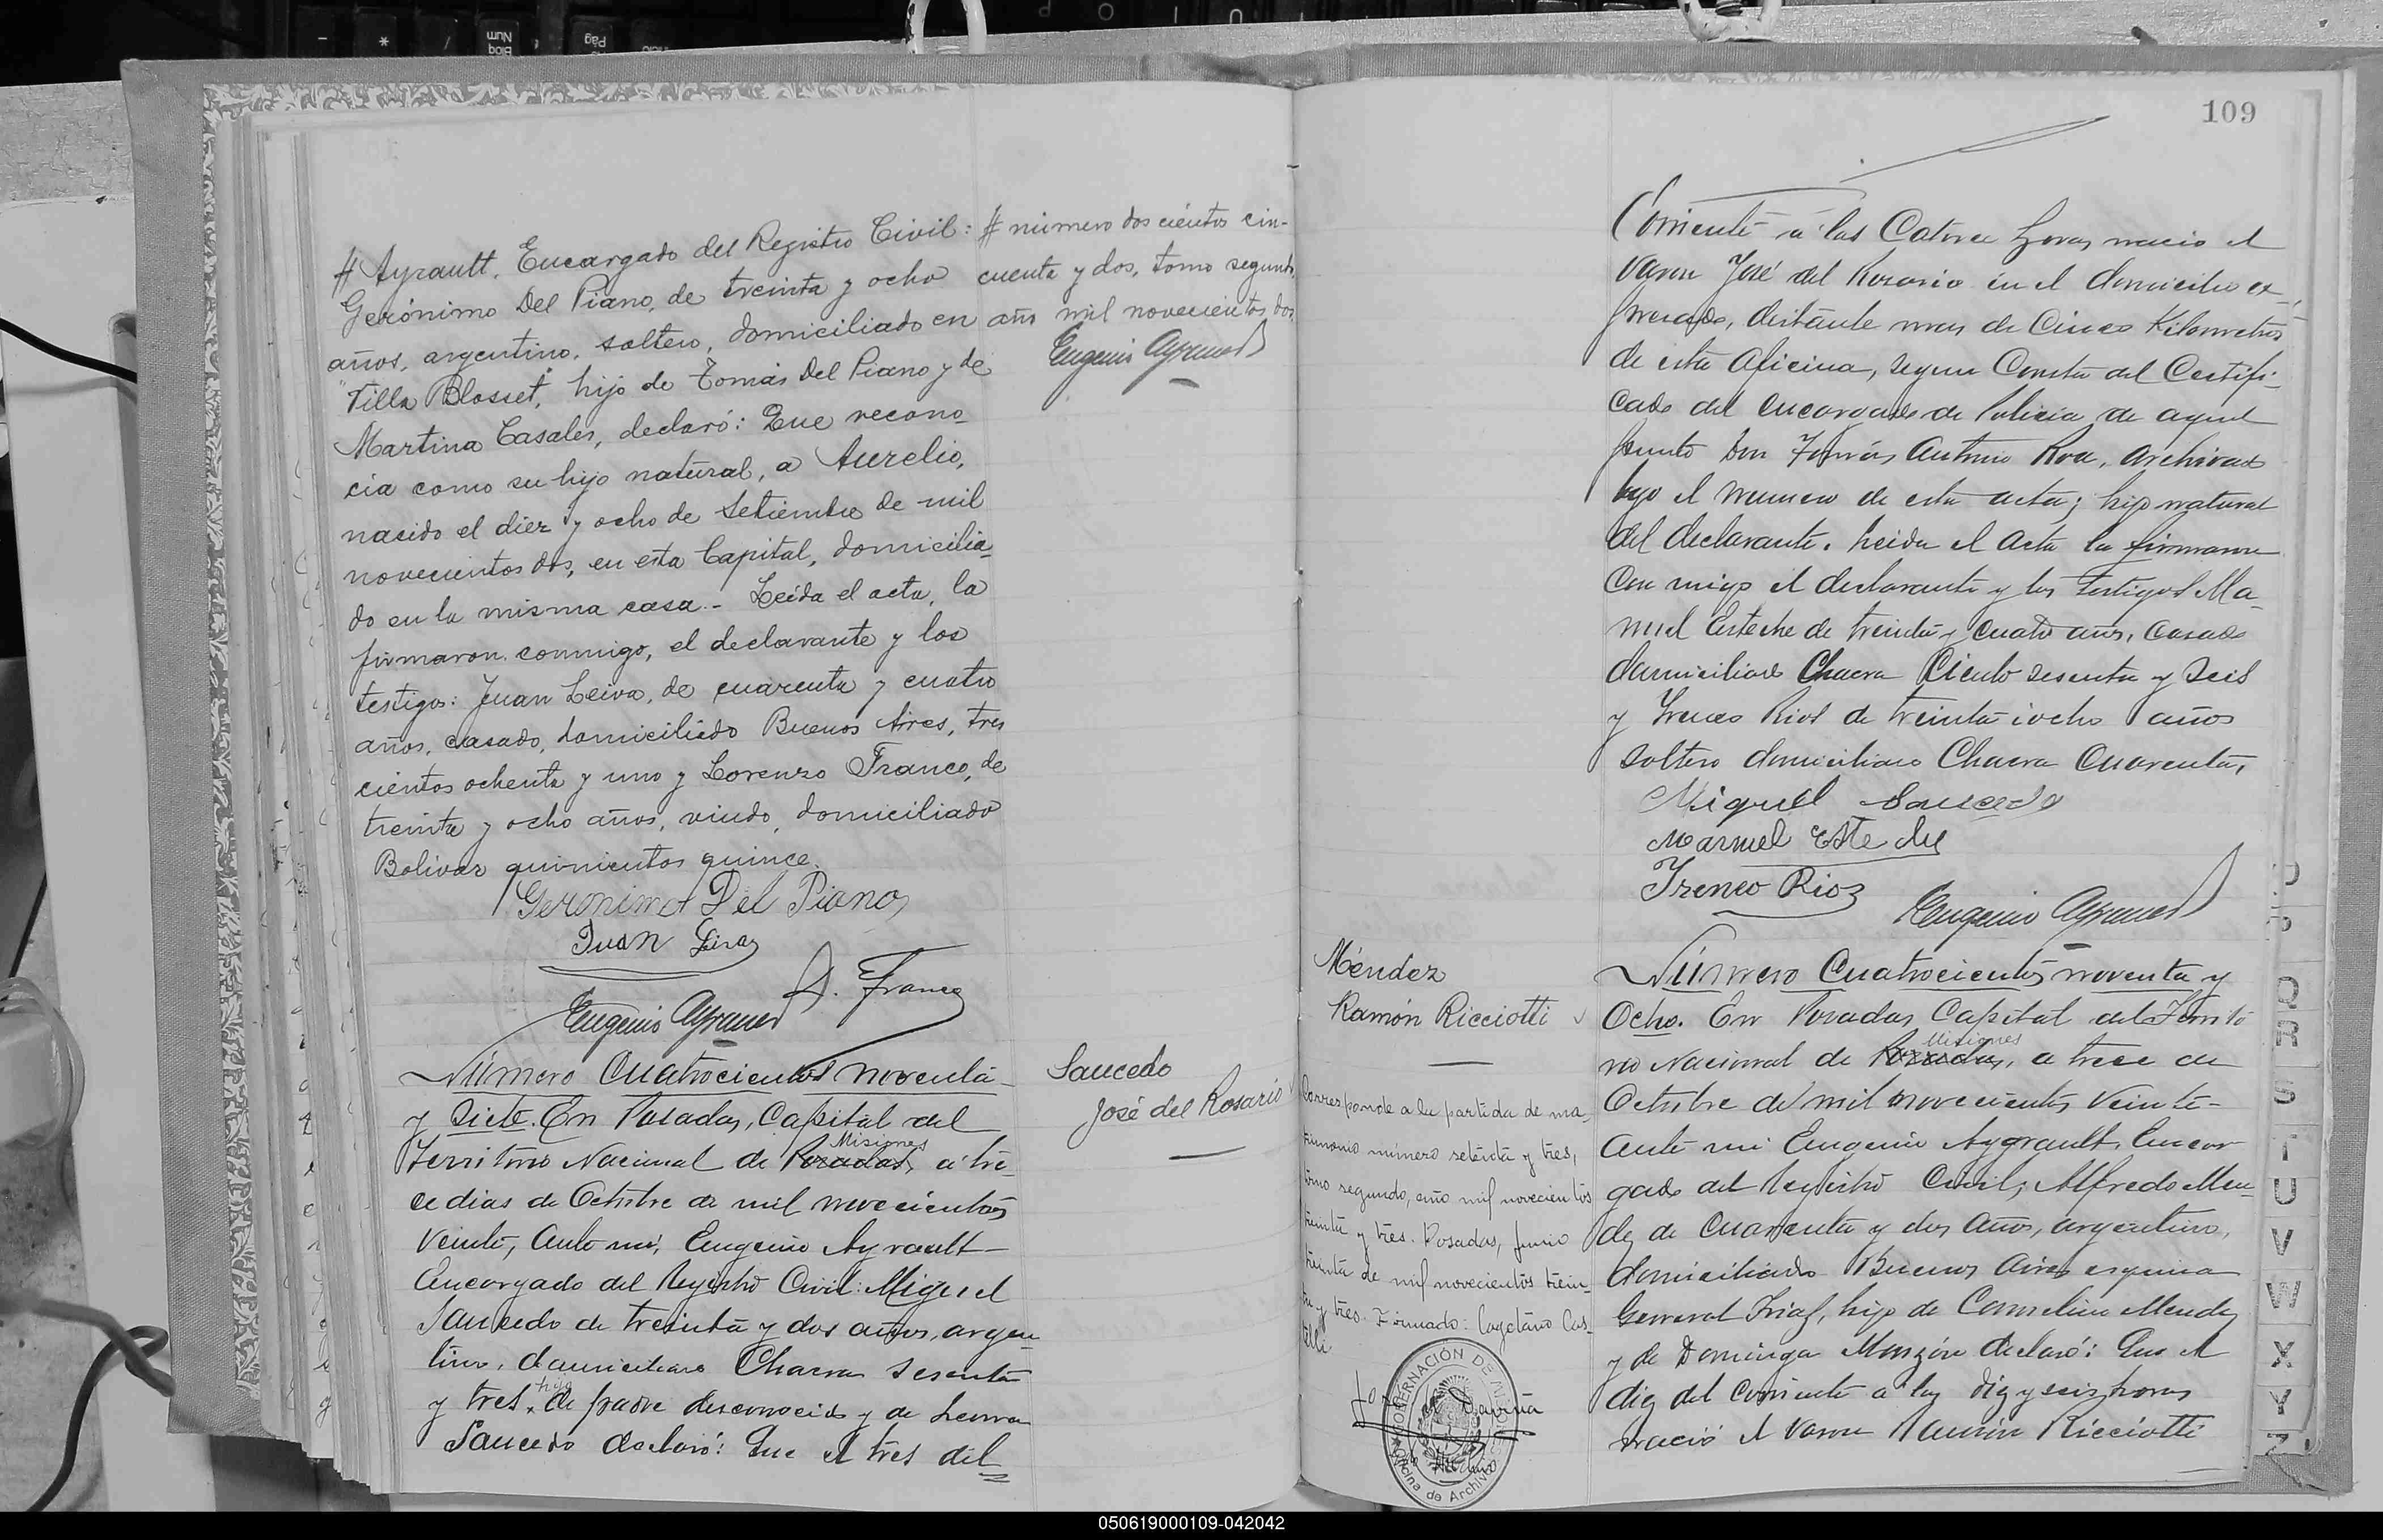 # Ayrault, Encargado del Registro Civil:
Gerónimo Del Piano, de treinta y ocho
años, argentino, soltero, domiciliado en
"Villa Blosset", hijo de Tomás Del Piano y de
Martina Casales, declaró: Que recono-
cía como su hijo natural, a Aurelio,
nacido el diez y ocho de Setiembre de mil
novecientos dos, en esta Capital, domicilia-
do en la misma casa.- Leída el acta, la
firmaron conmigo, el declarante y los
testigos: Juan Leiva, de cuarenta y cuatro
años, casado, domiciliado Buenos Aires, tres
cientos ochenta y uno y Lorenzo Franco, de
treinta y ocho años, viudo, domiciliado
Bolivar quinientos quince.
Geronimo Del Piano
Juan
Franco
Eugenio Ayrault
# número doscientos cin-
cuenta y dos, tomo segundo,
año mil novecientos dos
Eugenio Ayrault
Número Cuatrocientos noventa
y Siete. En Posadas, Capital del
Misiones
Territorio Nacional de Posadas, á tre-
ce dias de Octubre de mil novecientos
veinte, ante mi, Eugenio Ayrault
Encargado del Registro Civil: Miguel
Saucedo de treinta y dos años, argen-
tino, domiciliado Chacra sesenta
hijo
y tres, de padre desconocido y de
Saucedo declaró: Que el tres del
Saucedo
José del Rosario
109
Corriente á las Catorce horas nació el
varon José del Rosario en el domicilio ex-
presado, distante mas de Cinco Kilometros
de esta Oficina, segun Consta del Certifi-
cado del encargado de Policia de aquel
punto Don Tomás Antonio Roa, archivado
bajo el numero de esta acta; hijo natural
del declarante. Leida el Acta la firmaron
con migo el declarante y los testigos Ma-
nuel Esteche de treinta y cuatro años, casado
domiciliado Chacra Ciento sesenta y seis
y Ireneo Rios de treinta i ocho años
soltero domiciliado Chacra Cuarenta,
Miguel Saucedo
Manuel Esteche
Ireneo Rios
Eugenio Ayrault
Méndez
Ramón Ricciotti
Corresponde a la partida de ma-
trimonio número setenta y tres,
tomo segundo, año mil novecientos
treinta y tres. Posadas, junio
treinta de mil novecientos trein-
ta y tres. Firmado: Cayetano Cas-
telli.
GOBERNACIÓN DE MISIONES
Oficina de Archivo
Número Cuatrocientos noventa y
Ocho. En Posadas Capital del Territo
Misiones
rio Nacional de Posadas, a trece de
Octubre de mil novecientos veinte-
ante mi Eugenio Aygrault, Encar
gado del Registro Civil, Alfredo Men-
dez de cuarenta y dos años, argentino,
domiciliado Buenos Aires esquina
General Frias, hijo de Cornelio Mendez
y de Dominga Monzón declaró: Que el
diez del corriente a las diez y seis horas
nació el varon Ramón Ricciotti
P
Q
R
S
T
U
V
W
X
Y
Z
050619000109-042042